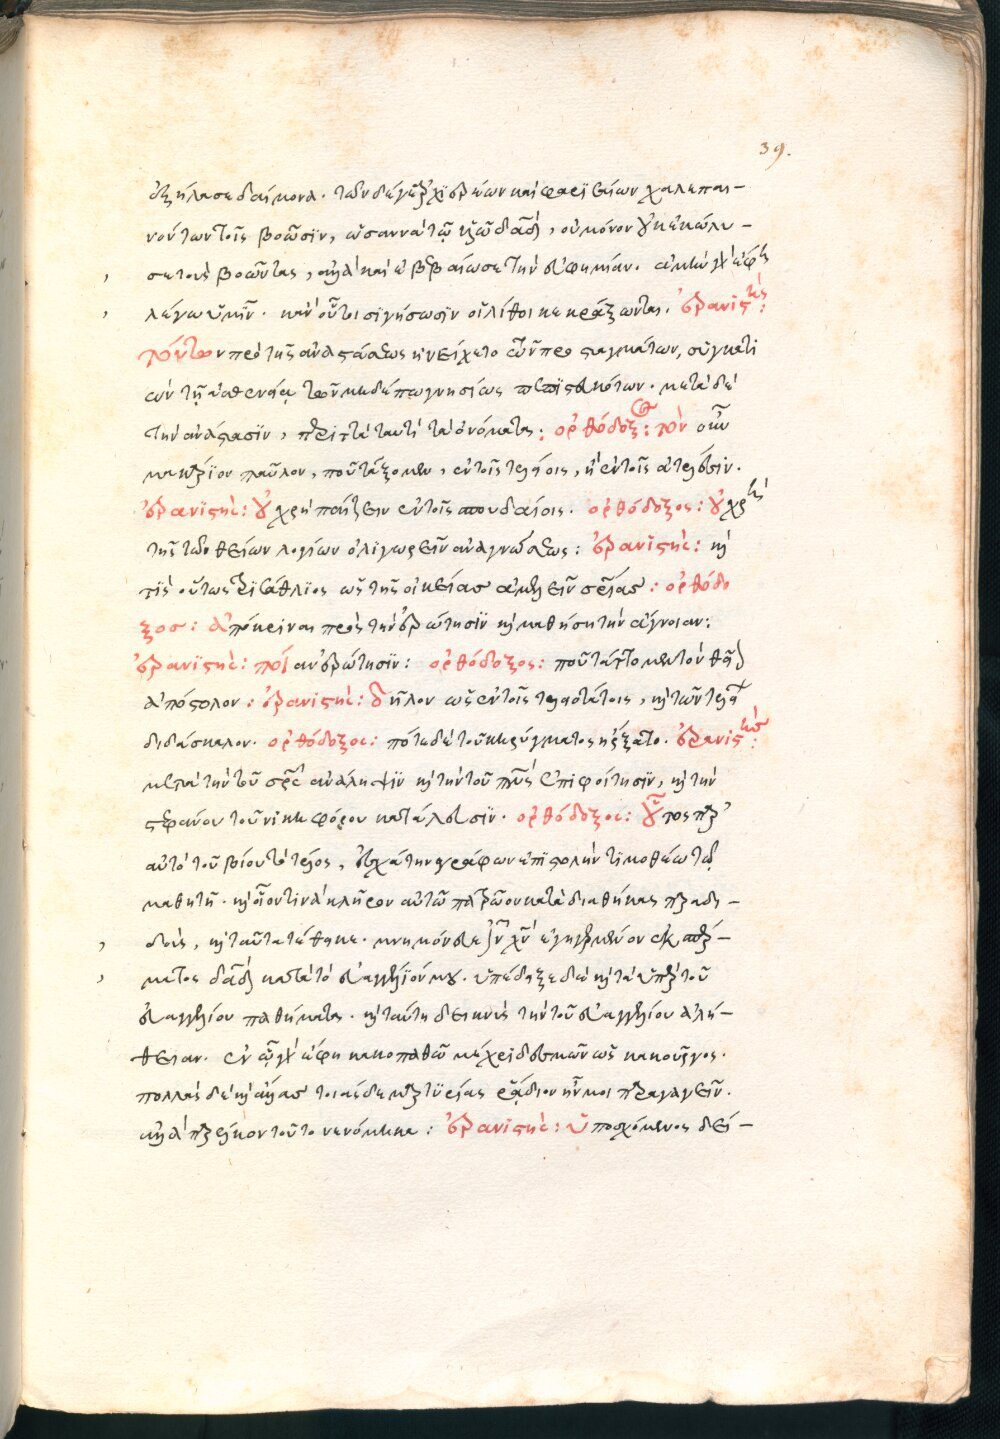 39.
ἐξήλασε δαίμονα. τῶν δέ γε ἀρχιερέων καὶ φαρισαίων χαλεπαι-
νόντων τοῖς βοῶσιν, ὡσαννὰ τῷ υἱῷ δαδ, οὐ μόνον οὐ κεκώλυ-
σε τοὺς βοῶντας, ἀλλὰ καὶ ἐβεβαίωσε τὴν εὐφημίαν. ἀμὴν γὰρ ἔφη
λέγω ὑμῖν. κἂν οὗτοι σιγήσωσιν οἱ λίθοι κεκράξωνται. ἐρανιστής:
τούτων πρὸ τῆς ἀναστάσεως ἠνείχετο τῶν προσρημάτων, συγκατι
ὼν τῇ ἀσθενείᾳ τῶν μηδέπω γνησίως πεπιστευκότων. μετὰ δὲ
τὴν ἀνάστασιν, περιττὰ ταυτὶ τὰ ὀνόματα: ὀρθόδοξος: τὸν οὖν
μακάριον παῦλον, ποῦ τάξομεν, ἐν τοῖς τελείοις, ἢ ἐν τοῖς ἀτελέσιν.
ἐρανιστής: οὐ χρὴ παίζειν ἐν τοῖς σπουδαίοις. ὀρθόδοξος: οὐ χρὴ
τῆς τῶν θείων λογίων ὀλιγωρεῖν ἀναγνώσεως: ἐρανιστής: καὶ
τίς οὕτως τρισάθλιος ὡς τῆς οἰκείας ἀμελεῖν σρίας: ὀρθόδο
ξος: ἀπόκριναι πρὸς τὴν ἐρώτησιν καὶ μαθήσῃ τὴν ἄγνοιαν:
ἐρανιστής: ποίαν ἐρώτησιν: ὀρθόδοξος: ποῦ τάττομεν τὸν θεῖον
ἀπόστολον: ἐρανιστής: δῆλον ὡς ἐν τοῖς τελειοτάτοις, καὶ τῶν τελείων
διδάσκαλον. ὀρθόδοξος: πότε δὲ τοῦ κηρύγματος ἤρξατο. ἐρανιστής:
μετὰ τὴν τοῦ σρς ἀνάληψιν καὶ τὴν τοῦ πνς ἐπιφοίτησιν, καὶ τὴν
στεφάνου τοῦ νικηφόρου κατάλευσιν. ὀρθόδοξος: οὗτος παρ’
αὐτὸ τοῦ βίου τὸ τέλος, ἐσχάτην γράφων ἐπιστολὴν τιμοθέῳ τῷ
μαθητῇ. καὶ οἷόν τινα κλῆρον αὐτῷ πατρῷον κατὰ διαθήκας παραδι-
δοὺς, καὶ ταῦτα τέθηκε. μνημόνευε ιν χν ἐγηγερμένον ἐκ σπέρ-
ματος δαδ κατὰ τὸ εὐαγγέλιόν μου. ὑπέδειξε δὲ καὶ τὰ ὑπὲρ τοῦ
εὐαγγελίου παθήματα. καὶ ταύτῃ δεικνὺς τὴν τοῦ εὐαγγελίου ἀλή-
θειαν. ἐν ᾧ γὰρ ἔφη κακοπαθῶ μέχρι δεσμῶν ὡς κακοῦργος.
πολλὰς δὲ καὶ ἄλλας τοιάσδε μαρτυρίας ῥᾴδιον ἦν μοι παραγαγεῖν.
ἀλλὰ παρέλκον τοῦτο νενόμικα: ἐρανιστής: ὑποσχόμενος δεί-